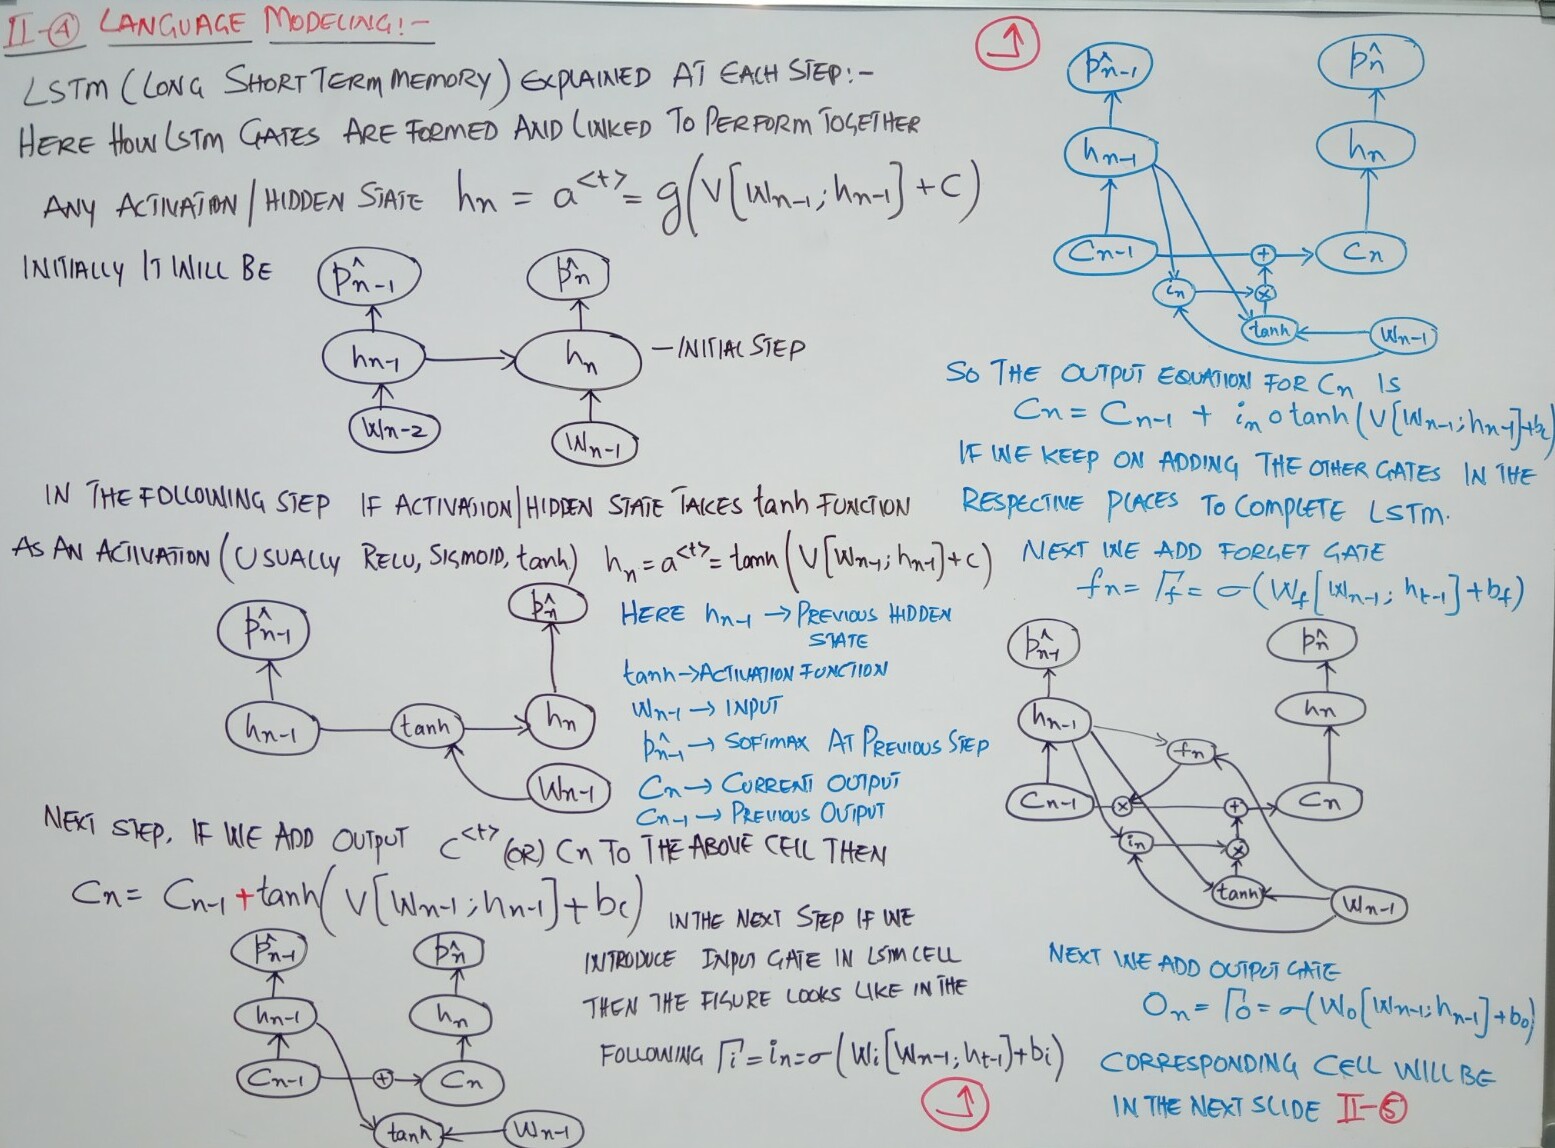 II-④ LANGUAGE MODELING:-
LSTM (LONG SHORT TERM MEMORY) EXPLAINED AT EACH STEP:-
HERE HOW LSTM GATES ARE FORMED AND LINKED TO PERFORM TOGETHER
ANY ACTIVATION/HIDDEN STATE hn = a<t> = g(V[Wn-1; hn-1] + C)
INITIALLY IT WILL BE
p̂n-1
p̂n
hn-1
hn
— INITIAL STEP
Wn-2
Wn-1
IN THE FOLLOWING STEP IF ACTIVATION/HIDDEN STATE TAKES tanh FUNCTION
AS AN ACTIVATION (USUALLY RELU, SIGMOID, tanh) hn = a<t> = tanh(V[Wn-1; hn-1]+c)
p̂n-1
p̂n
hn-1
tanh
hn
Wn-1
HERE hn-1 → PREVIOUS HIDDEN
STATE
tanh → ACTIVATION FUNCTION
Wn-1 → INPUT
p̂n-1 → SOFTMAX AT PREVIOUS STEP
Cn → CURRENT OUTPUT
Cn-1 → PREVIOUS OUTPUT
NEXT STEP, IF WE ADD OUTPUT C<t> (OR) Cn TO THE ABOVE CELL THEN
Cn = Cn-1 + tanh(V[Wn-1; hn-1] + bc)
p̂n-1
p̂n
hn-1
hn
Cn-1
+
Cn
tanh
Wn-1
IN THE NEXT STEP IF WE
INTRODUCE INPUT GATE IN LSTM CELL
THEN THE FIGURE LOOKS LIKE IN THE
FOLLOWING Γi = in = σ(Wi[Wn-1; ht-1]+bi)
↑
↑
p̂n-1
p̂n
hn-1
hn
Cn-1
+
Cn
in
×
tanh
Wn-1
SO THE OUTPUT EQUATION FOR Cn IS
Cn = Cn-1 + in o tanh(V[Wn-1; hn-1]+bc)
IF WE KEEP ON ADDING THE OTHER GATES IN THE
RESPECTIVE PLACES TO COMPLETE LSTM.
NEXT WE ADD FORGET GATE
fn = Γf = σ(Wf[Wn-1; ht-1]+bf)
p̂n-1
p̂n
hn-1
hn
fn
Cn-1
×
+
Cn
in
×
tanh
Wn-1
NEXT WE ADD OUTPUT GATE
On = Γo = σ(Wo[Wn-1; hn-1]+bo)
CORRESPONDING CELL WILL BE
IN THE NEXT SLIDE II-⑤